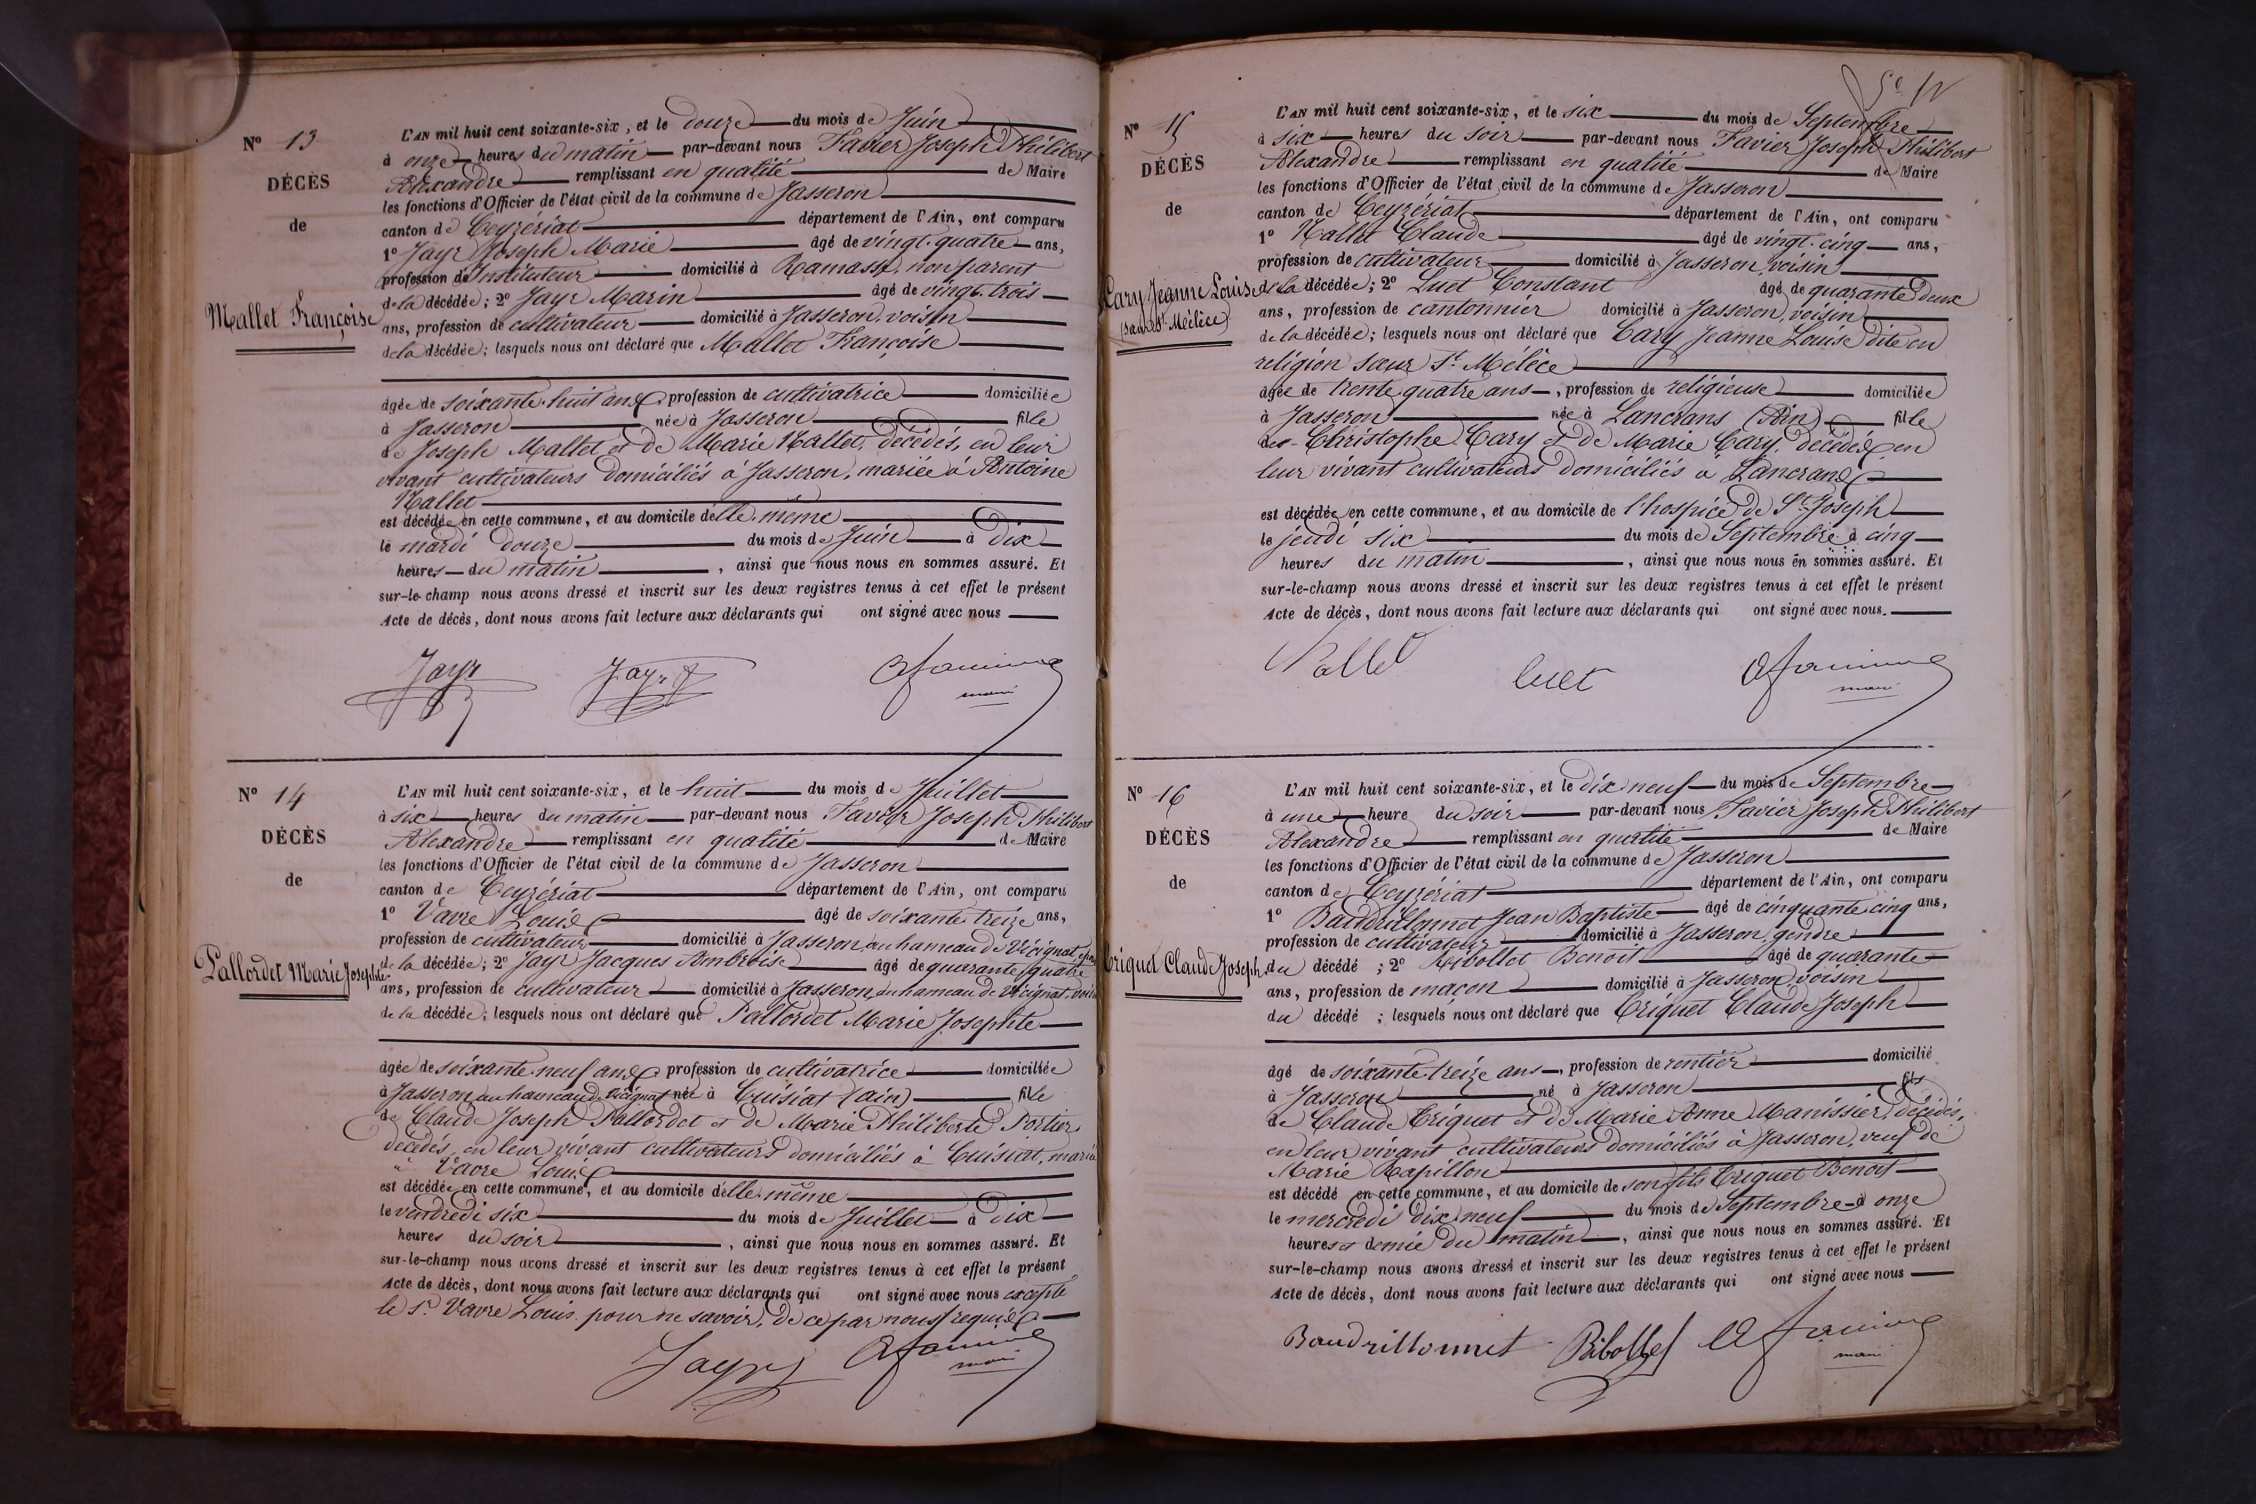 N° 13
DÉCÈS
de
Mallet Françoise
L'AN mil huit cent soixante-six, et le douze du mois de Juin
à onze heures du matin par-devant nous Favier Joseph Philibert
Alexandre remplissant en qualité de Maire
les fonctions d'Officier de l'état civil de la commune de Jasseron
canton de Ceyzériat département de l'Ain, ont comparu
1° Jayr Joseph Marie âgé de vingt-quatre ans,
profession de Instituteur domicilié à Ramasse, non parent
de la décédée; 2° Jayr Marin âgé de vingt-trois
ans, profession de cultivateur domicilié à Jasseron, voisin
de la décédée; lesquels nous ont déclaré que Mallet Françoise
âgée de soixante-huit ans, profession de cultivatrice domiciliée
à Jasseron née à Jasseron fille
de Joseph Mallet et de Marie Nallet, décédés, en leur
vivant cultivateurs domiciliés à Jasseron, mariée à Antoine
Nallet
est décédée en cette commune, et au domicile d'elle-même
le mardi douze du mois de Juin à dix
heures du matin, ainsi que nous nous en sommes assuré. Et
sur-le-champ nous avons dressé et inscrit sur les deux registres tenus à cet effet le présent
Acte de décès, dont nous avons fait lecture aux déclarants qui ont signé avec nous
Jayr Jayr
maire
N° 14
DÉCÈS
de
Pallordet Marie Josephte
L'AN mil huit cent soixante-six, et le huit du mois de Juillet
à six heures du matin par-devant nous Favier Joseph Philibert
Alexandre remplissant en qualité de Maire
les fonctions d'Officier de l'état civil de la commune de Jasseron
canton de Ceyzériat département de l'Ain, ont comparu
1° Vavre Louis âgé de soixante-treize ans,
profession de cultivateur domicilié à Jasseron, au hameau de Vicignat,
de la décédée; 2° Jayr Jacques Ambroise âgé de quarante-quatre
ans, profession de cultivateur domicilié à Jasseron, au hameau de Vicignat, voisin
de la décédée; lesquels nous ont déclaré que Pallordet Marie Josephte
âgée de soixante-neuf ans, profession de cultivatrice domiciliée
à Jasseron, au hameau de Vicignat née à Cuisiat (ain) fille
de Claude Joseph Pallordet et de Marie Philiberte Portier,
décédés, en leur vivant cultivateurs domiciliés à Cuisiat, mariée
à Vavre Louis
est décédée en cette commune, et au domicile d'elle-même
le vendredi six du mois de Juillet à dix
heures du soir, ainsi que nous nous en sommes assuré. Et
sur-le-champ nous avons dressé et inscrit sur les deux registres tenus à cet effet le présent
Acte de décès, dont nous avons fait lecture aux déclarants qui ont signé avec nous excepté
le Sr. Vavre Louis pour ne savoir, de ce par nous requis
Jayr
maire
N° 15
DÉCÈS
de
Cary Jeanne Louise
L'AN mil huit cent soixante-six, et le six du mois de Septembre
à six heures du soir par-devant nous Favier Joseph Philibert
Alexandre remplissant en qualité de Maire
les fonctions d'Officier de l'état civil de la commune de Jasseron
canton de Ceyzériat département de l'Ain, ont comparu
1° Nallet Claude âgé de vingt-cinq ans,
profession de cultivateur domicilié à Jasseron, voisin
de la décédée; 2° Luet Constant âgé de quarante-deux
ans, profession de cantonnier domicilié à Jasseron, voisin
de la décédée; lesquels nous ont déclaré que Cary Jeanne Louise dite en
religion sœur St. Mélèce
âgée de trente-quatre ans, profession de religieuse domiciliée
à Jasseron née à Lancrans (Ain) fille
de Christophe Cary et de Marie Cary, décédés, en
leur vivant cultivateurs domiciliés à Lancrans
est décédée en cette commune, et au domicile de l'hospice de St. Joseph
le jeudi six du mois de Septembre à cinq
heures du matin, ainsi que nous nous en sommes assuré. Et
sur-le-champ nous avons dressé et inscrit sur les deux registres tenus à cet effet le présent
Acte de décès, dont nous avons fait lecture aux déclarants qui ont signé avec nous.
Nallet luet
maire
N° 16
DÉCÈS
de
Criquet Claude Joseph
L'AN mil huit cent soixante-six, et le dix neuf du mois de Septembre
à une heure du soir par-devant nous Favier Joseph Philibert
Alexandre remplissant en qualité de Maire
les fonctions d'Officier de l'état civil de la commune de Jasseron
canton de Ceyzériat département de l'Ain, ont comparu
1° Baudrillonnet Jean Baptiste âgé de cinquante-cinq ans,
profession de cultivateur domicilié à Jasseron, gendre
du décédé; 2° Ribollet Benoit âgé de quarante
ans, profession de maçon domicilié à Jasseron, voisin
du décédé; lesquels nous ont déclaré que Criquet Claude Joseph
âgé de soixante-treize ans, profession de rentier domicilié
à Jasseron né à Jasseron fils
de Claude Criquet et de Marie Anne Manissier, décédés,
en leur vivant cultivateurs domiciliés à Jasseron, veuf de
Marie Rapillon
est décédé en cette commune, et au domicile de son fils Criquet Benoit
le mercredi dix neuf du mois de Septembre à onze
heures et demie du matin, ainsi que nous nous en sommes assuré. Et
sur-le-champ nous avons dressé et inscrit sur les deux registres tenus à cet effet le présent
Acte de décès, dont nous avons fait lecture aux déclarants qui ont signé avec nous
Baudrillonnet Ribollet
maire